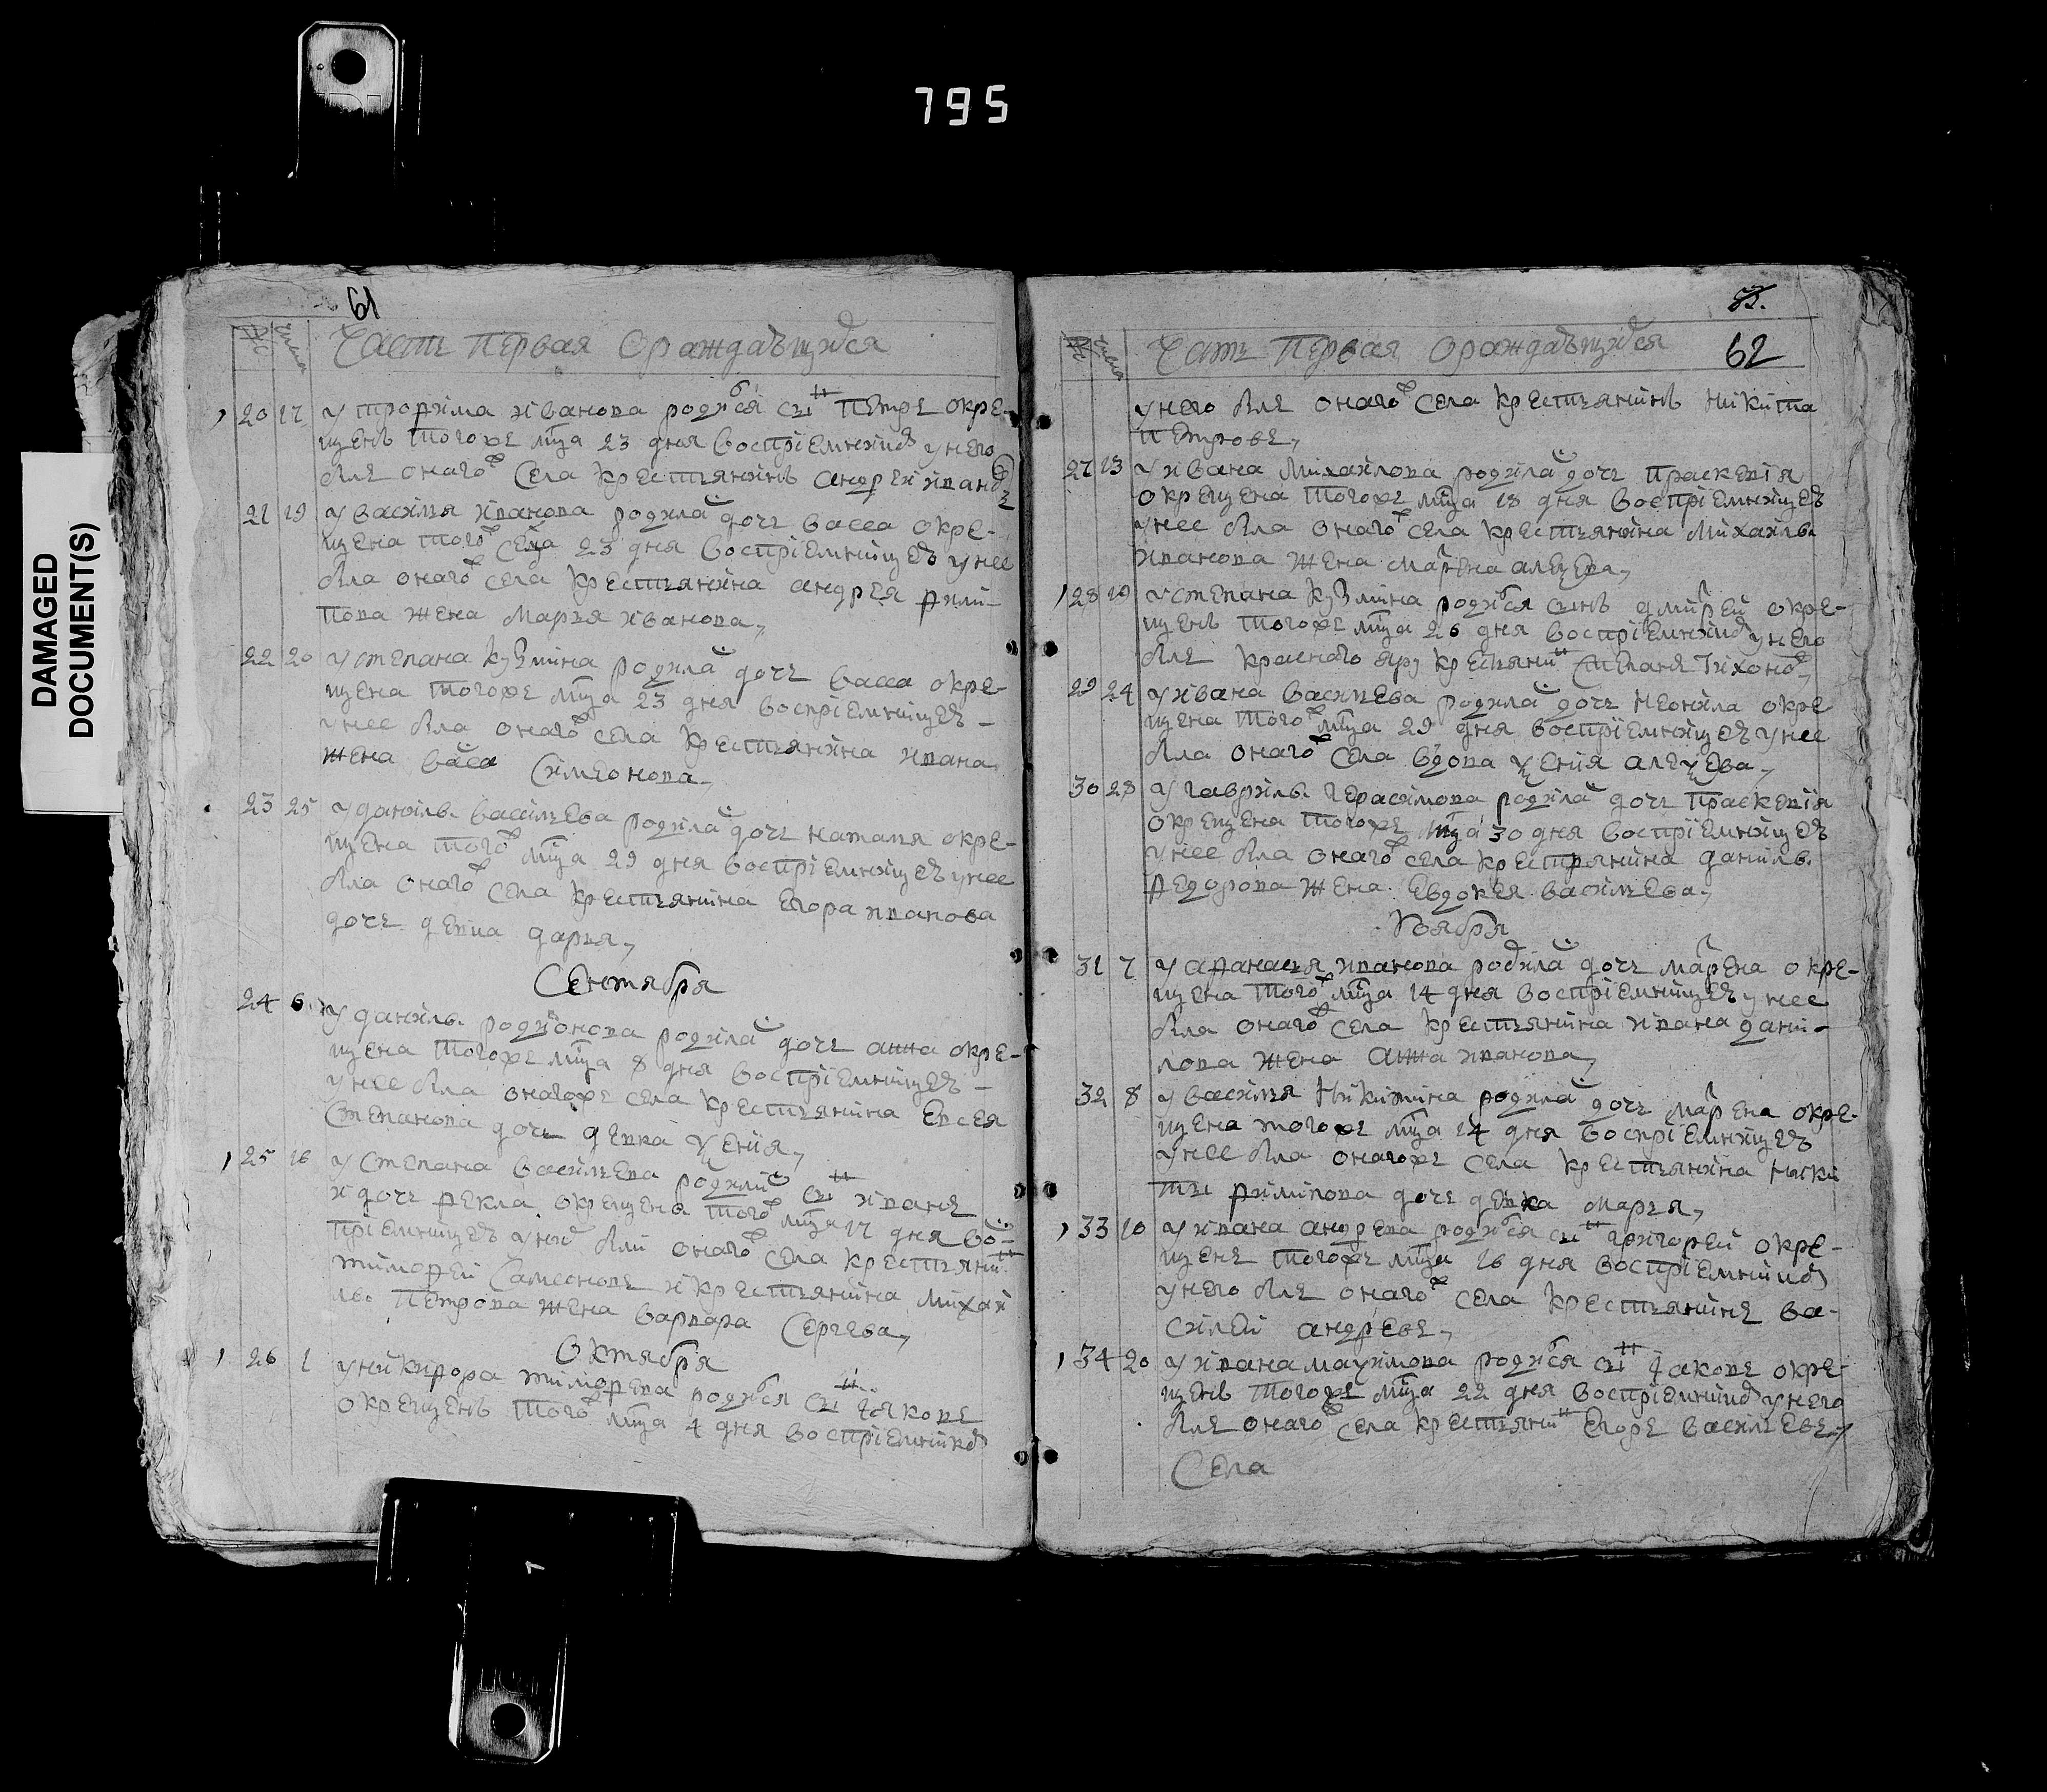 795
DAMAGED
DOCUMENT(S)
61
Часть Первая Ораждающихся
20 17 У трофима иванова родился сынъ петръ окре-
щенъ тогоже мца 23 дня восприемникъ у него
былъ оного же села крестьянинъ андрей ивановъ
21 19 У василья иванова родилась дочь васса окре-
щена того же села 23 дня восприемницею у нее
была оного же села крестьянина андрея фили-
пова жена марья иванова,
22 20 У степана кузмина родилась дочь васса окре-
щена тогоже мца 23 дня восприемницею -
у нее была оного же села крестьянина ивана
жена васса Симеонова,
23 25 У данилы васильева родилась дочь наталья окре-
щена того же мца 29 дня восприемницею у нее
была оного же села крестьянина егора иванова
дочь девка дарья,
Сентября
24 6 У данилы родионова родилась дочь анна окре-
щена тогоже мца 8 дня восприемницею -
у нее была оногоже села крестьянина евсея
Степанова дочь девка ксения,
25 16 У степана васильева родились сынъ иванъ
и дочь фекла окрещена того же мца 17 дня вос-
приемницею у них были оного же села крестьянинъ
тимофей Самсоновъ и крестьянина михаи
лы петрова жена варвара Сергева,
Октября
26 1 У никифора тимофева родился сынъ иаковъ
окрещенъ того же мца 4 дня восприемникъ
62
Часть Первая Ораждающихся
у него былъ оного же села крестьянинъ никита
петровъ,
27 13 У ивана михаилова родилась дочь праскевия
окрещена тогоже мца 18 дня восприемницею
у нее была оного же села крестьянина михаилы
иванова жена марфена алецева,
28 19 У степана кузмина родился сынъ дмитрей окре-
щенъ тогоже мца 26 дня восприемникъ у него
былъ красного яру крестьянинъ степанъ тихоновъ,
29 24 У ивана васильева родилась дочь неонила окре
щена того же мца 29 дня восприемницею у нее
была оного же села вдова ксения алексева,
30 28 У гаврилы герасимова родилась дочь праскевия
окрещена тогоже мца 30 дня восприемницею
у нее была оного же села крестьянина данилы
федорова жена евдокея васильева,
Ноября
31 7 У афанасья иванова родилась дочь марфена окре-
щена того же мца 14 дня восприемницею у нее
была оного же села крестьянина ивана дани-
лова жена анна иванова,
32 8 У василья никитина родилась дочь марфена окре-
щена тогоже мца 14 дня восприемницею
у нее была оногоже села крестьянина ники
ты филипова дочь девка марья,
33 10 У ивана андрева родился сынъ григорей окре-
щенъ тогоже мца 16 дня восприемникъ
у него былъ оного же села крестьянинъ ва-
силей андревъ,
34 20 У ивана максимова родился сынъ иаковъ окре-
щенъ тогоже мца 22 дня восприемникъ у него
былъ оного же села крестьянинъ егоръ васильевъ,
Села